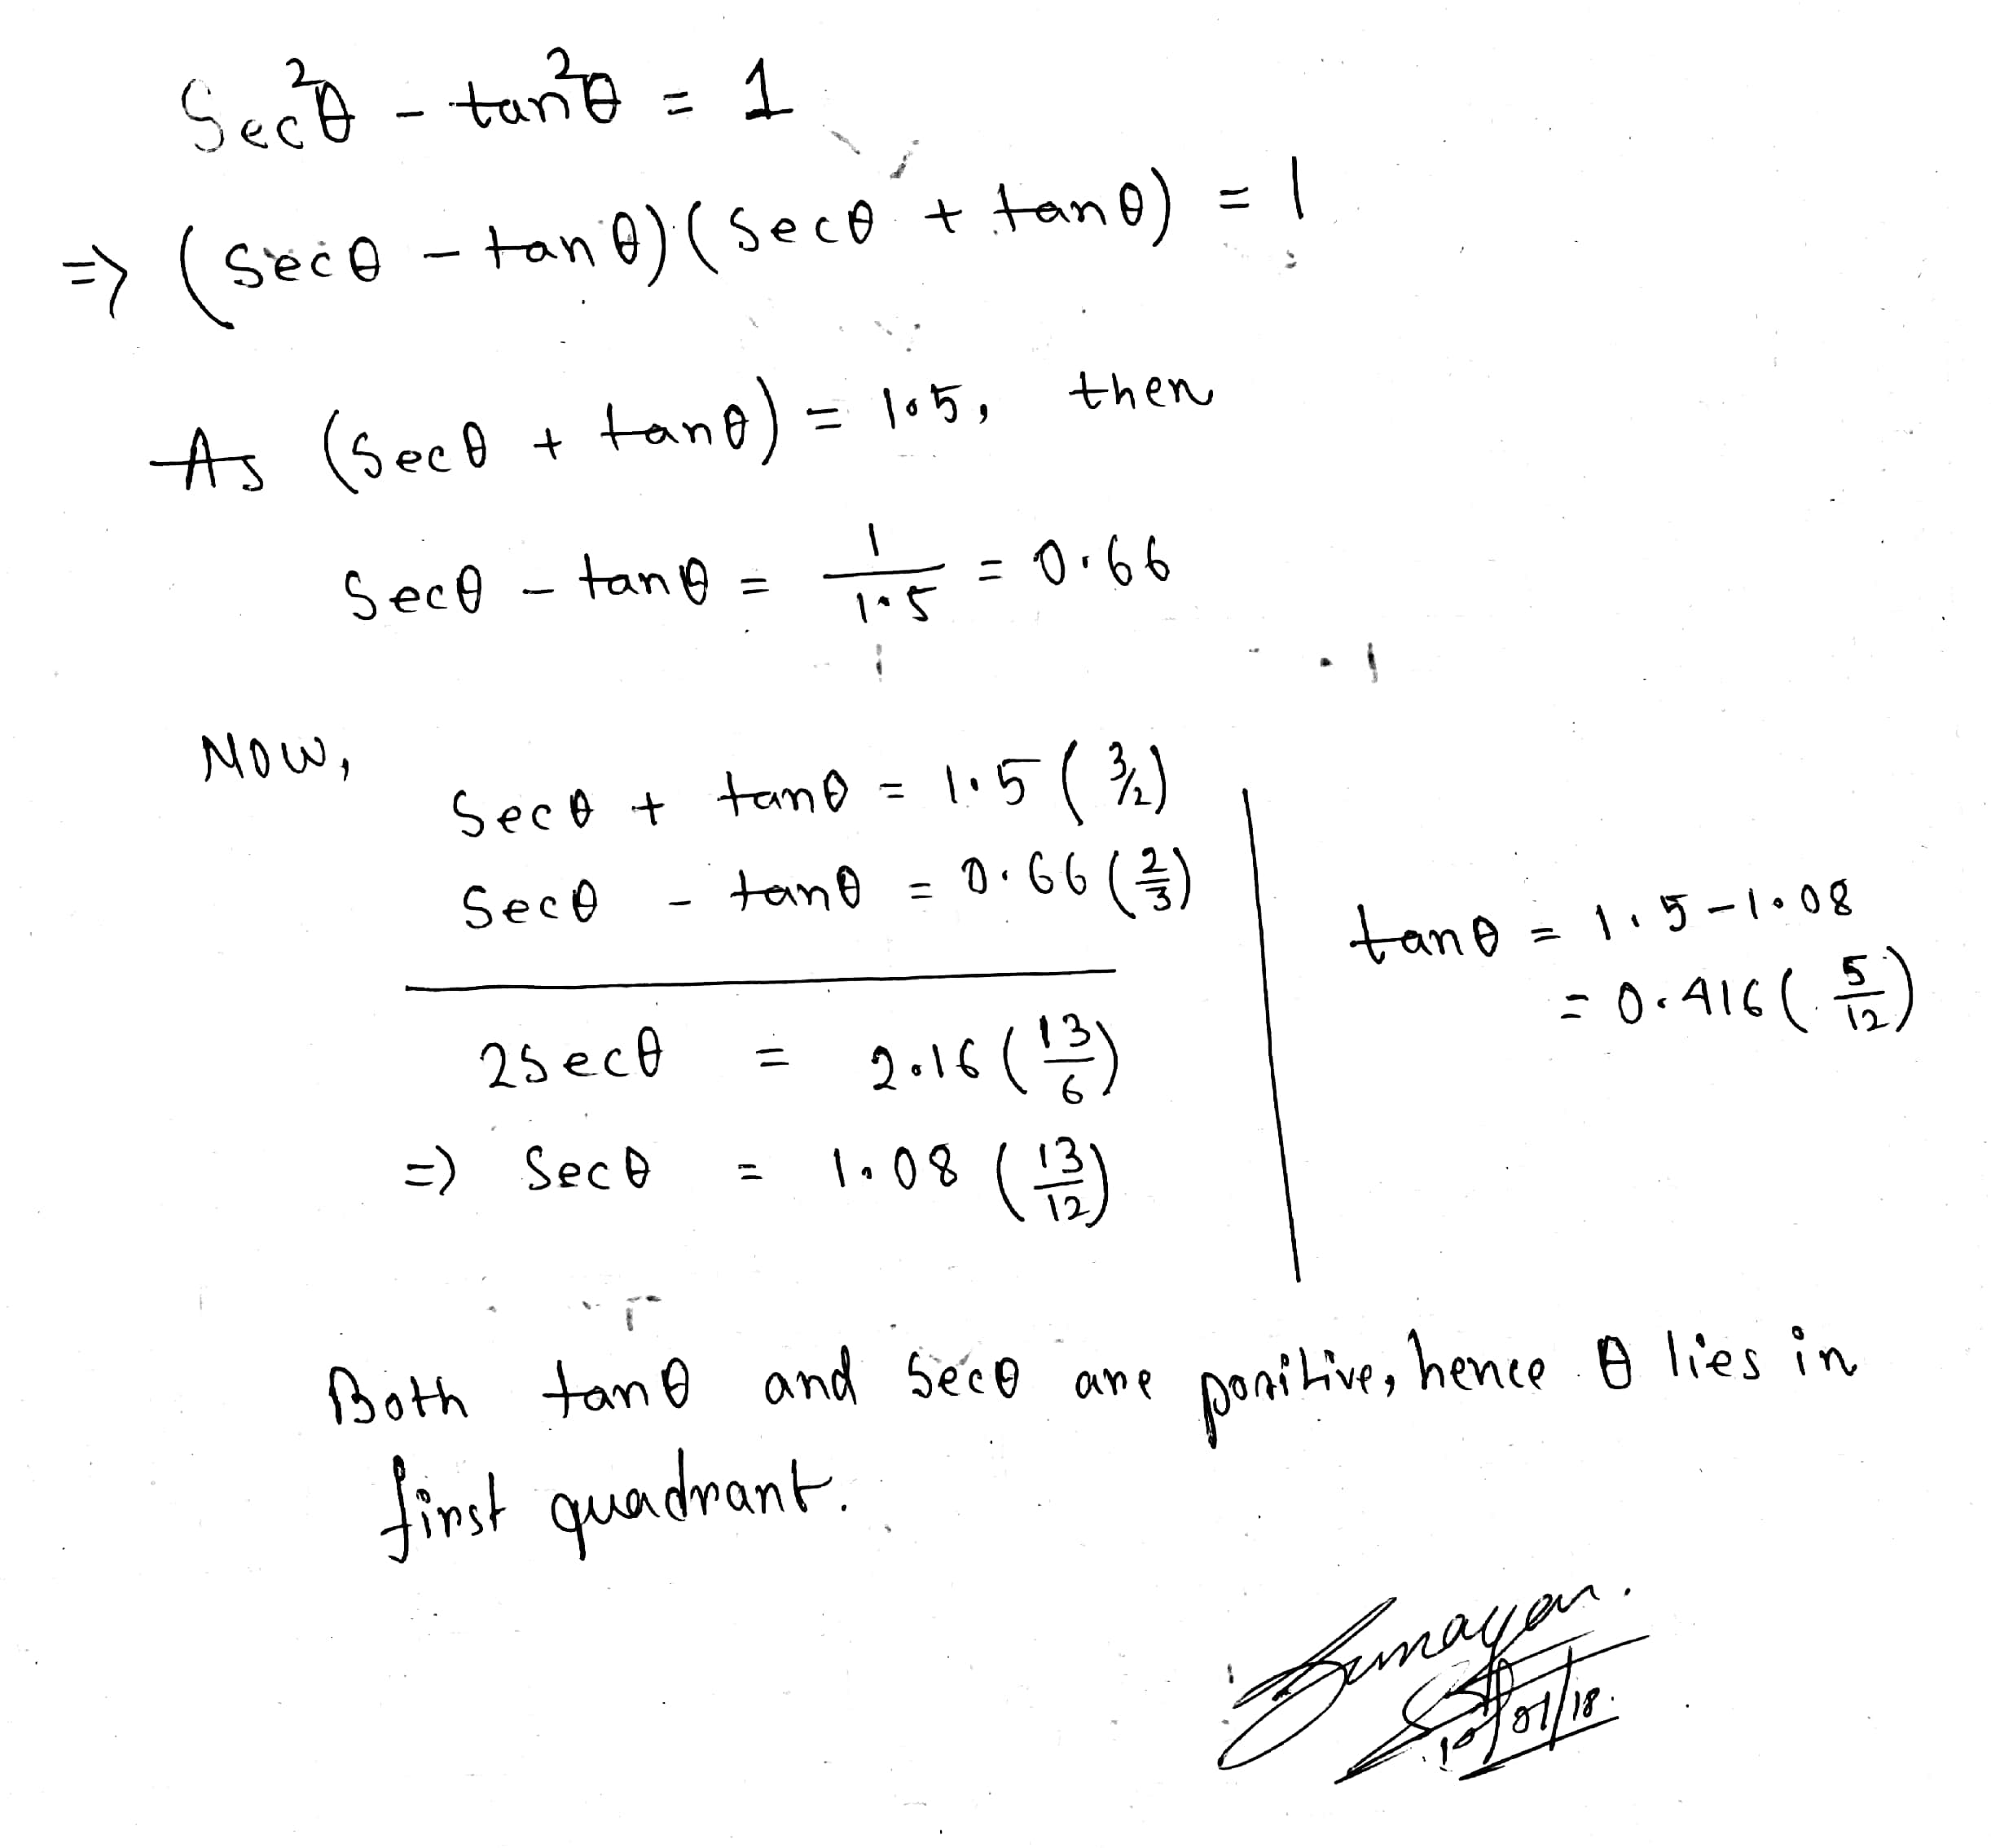 Sec²θ - tan²θ = 1
⇒ (Secθ - tanθ)(Secθ + tanθ) = 1
As (Secθ + tanθ) = 1.5, then
Secθ - tanθ = 1/1.5 = 0.66
Now,
Secθ + tanθ = 1.5 (3/2)
Secθ - tanθ = 0.66 (2/3)
2Secθ = 2.16 (13/6)
⇒ Secθ = 1.08 (13/12)
tanθ = 1.5-1.08
= 0.416 (5/12)
Both tanθ and Secθ are positive, hence θ lies in
first quadrant.